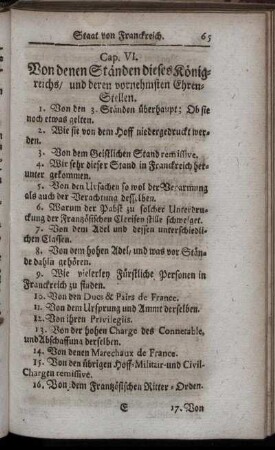 Staat von Franckreich. 65
Cap. VI.
Von denen Ständen dieses König-
reichs/ und deren vornehmsten Ehren-
Stellen.
1. Von den 3. Ständen überhaupt; Ob sie
noch etwas gelten.
2. Wie sie von dem Hoff niedergedruckt wer-
den.
3. Von dem Geistlichen Stand remissive.
4. Wie sehr dieser Stand in Franckreich her-
unter gekommen.
5. Von den Ursachen so wol der Verarmung
als auch der Verachtung desselben.
6. Warum der Pabst zu solcher Unterdru-
ckung der Frantzösischen Clerisey stille schweiget.
7. Von dem Adel und dessen unterschiedli-
chen Classen.
8. Von dem hohen Adel, und was vor Stän-
de dahin gehören.
9. Wie vielerley Fürstliche Personen in
Franckreich zu finden.
10. Von den Ducs & Pairs de France.
11. Von dem Ursprung und Ammt derselben.
12. Von ihren Privilegiis.
13. Von der hohen Charge des Connetable,
und Abschaffung derselben.
14. Von denen Marechaux de France.
15. Von den übrigen Hoff-Militair-und Civil-
Chargen remissive.
16. Von dem Frantzösischen Ritter-Orden.
E 17. Von